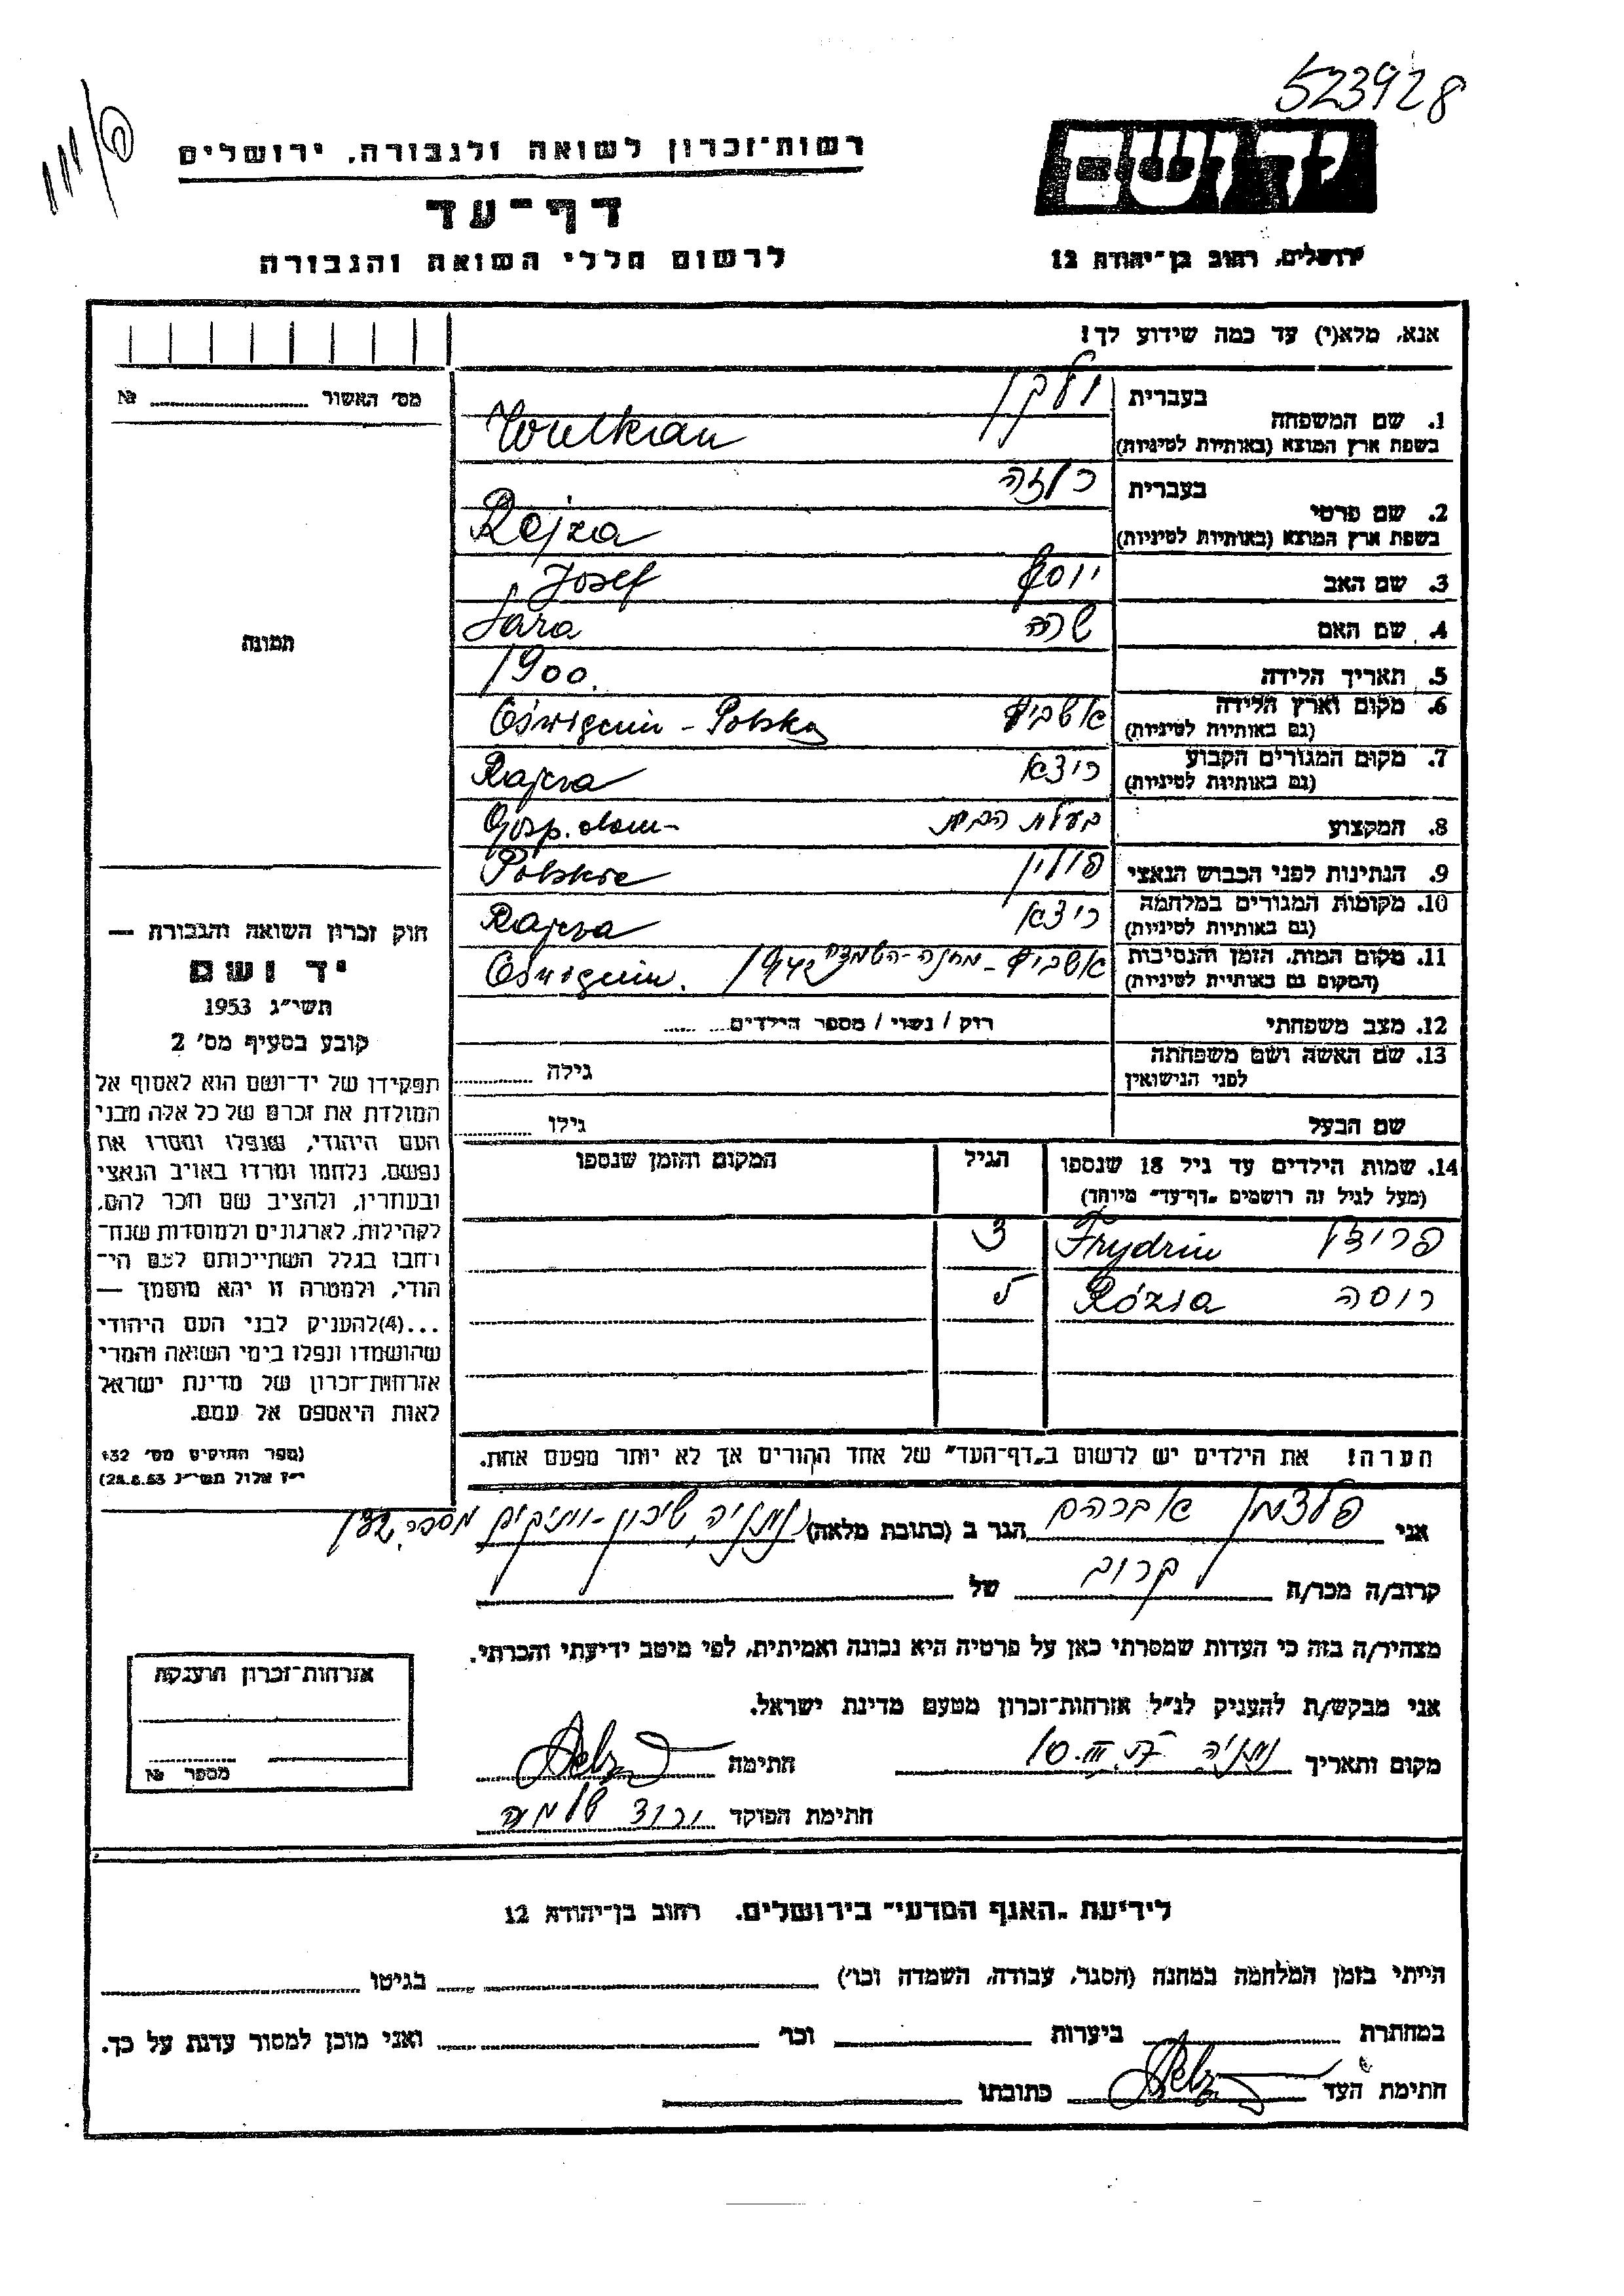 523928
רשות־זכרון לשואה ולגבורה, ירושלים
דף־עד
לרשום חללי השואה והגבורה
יד ושם
ירושלים, רחוב בן־יהודה 12
אנא, מלא(י) עד כמה שידוע לך!
מס' האשור № 
1. שם המשפחה
בעברית
בשפת ארץ המוצא (באותיות לטיניות)
2. שם פרטי
בעברית
בשפת ארץ המוצא (באותיות לטיניות)
Rajza
3. שם האב יוסף Josef
4. שם האם שרה Sara
5. תאריך הלידה 1900.
6. מקום וארץ הלידה Oświęcim - Polska
(גם באותיות לטיניות)
7. מקום המגורים הקבוע Rajcza
(גם באותיות לטיניות)
8. המקצוע בעלת הבית Gosp. dom-
9. הנתינות לפני הכבוש הנאצי פולין Polskie
10. מקומות המגורים במלחמה Rajcza
(גם באותיות לטיניות)
11. מקום המות, הזמן והנסיבות מחנה-השמדה 1942 Oświęcim.
(המקום גם באותיות לטיניות)
12. מצב משפחתי רוק / נשוי / מספר הילדים
13. שם האשה ושם משפחתה גילה
לפני הנישואין
שם הבעל גילו
14. שמות הילדים עד גיל 18 שנספו הגיל המקום והזמן שנספו
(מעל לגיל זה רושמים "דף־עד" מיוחד)
Rózia רוסה
הערה! את הילדים יש לרשום ב"דף־העד" של אחד ההורים אך לא יותר מפעם אחת.
תמונה
חוק זכרון השואה והגבורה —
יד ושם
תשי"ג 1953
קובע בסעיף מס' 2
תפקידו של יד־ושם הוא לאסוף אל
המולדת את זכרם של כל אלה מבני
העם היהודי, שנפלו ומסרו את
נפשם, נלחמו ומרדו באויב הנאצי
ובעוזריו, ולהציב שם וזכר להם,
לקהילות, לארגונים ולמוסדות שנח־
רבו בגלל השתייכותם לעם הי־
הודי, ולמטרה זו יהא מוסמך —
...(4) להעניק לבני העם היהודי
שהושמדו ונפלו בימי השואה והמרי
אזרחות־זכרון של מדינת ישראל
לאות היאספם אל עמם.
(ספר החוקים מס' 132
י"ז אלול תשי"ג 28.8.53)
אני אברהם הגר ב (כתובת מלאה) נתניה, שיכון-ותיקים
קרוב/ה מכר/ה קרוב של
מצהיר/ה בזה כי העדות שמסרתי כאן על פרטיה היא נכונה ואמיתית, לפי מיטב ידיעתי והכרתי.
אני מבקש/ת להעניק לנ"ל אזרחות־זכרון מטעם מדינת ישראל.
מקום ותאריך נתניה חתימה
חתימת הפוקד שלמה
אזרחות־זכרון הוענקה
מספר №
לידיעת "האגף המדעי" בירושלים, רחוב בן־יהודה 12
הייתי בזמן המלחמה במחנה (הסגר, עבודה, השמדה וכו') בגיטו
במחתרת ביערות וכו' ואני מוכן למסור עדות על כך.
חתימת העד כתובתו